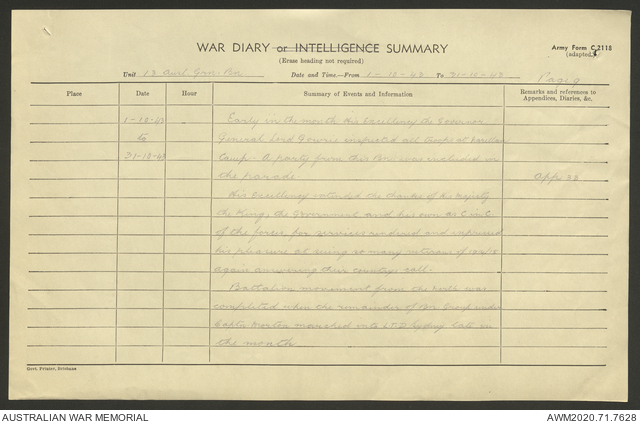 WAR DIARY or INTELLIGENCE SUMMARY
Army Form C.2118
(adapted)
(Erase heading not required)
Unit 13 Aust. Gar. Bn. Date and Time—From 1-12-42 To 31-12-42
Page 9
Place Date Hour Summary of Events and Information Remarks and references to Appendices, Diaries, &c.
1-12-42 Early in the month His Excellency the Governor
to General Lord Gowrie inspected all troops at
31-12-42 Camp. A party from this Bn. was included in
the parade. App.
His Excellency extended the thanks of His Majesty
the King, the Government and his own as C in C
of the forces, for services rendered and expressed
his pleasure at seeing so many veterans of 1914/18
again answering their country's call.
Battalion movement from the north was
completed when the remainder of Bn. under
Capt. Morton marched into Sydney late in
the month
Govt. Printer, Brisbane
AUSTRALIAN WAR MEMORIAL
AWM2020.71.7628